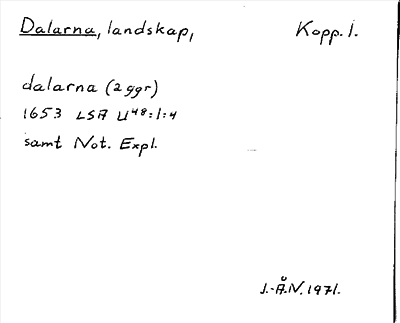 Dalarna, landskap, Kopp. l.
dalarna (2 ggr)
1653 LSA U48:1:4
samt Not. Expl.
J.-Å.N. 1971.